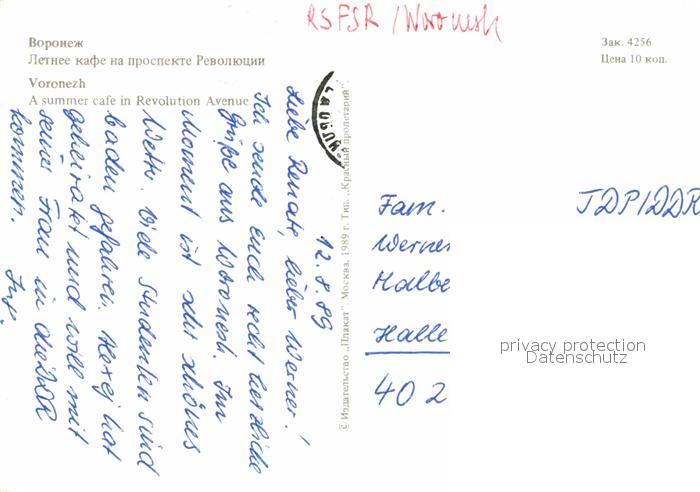 RSFSR / Woronesh
Воронеж
Летнее кафе на проспекте Революции
Voronezh
A summer cafe in Revolution Avenue
Зак. 4256
Цена 10 коп.
12.8.89
Liebe Renate, lieber Werner!
Ich sende euch recht herzliche
Grüße aus Woronesh. Im
Moment ist sehr schönes
Wetter. Viele Studenten sind
baden gefahren. Alexej hat
geheiratet und will mit
seiner Frau in die DDR
kommen.
© Издательство „Плакат”. Москва, 1989 г. Тип. „Красный пролетарий”.
Fam.
Werner
Halbe
Halle
402
ГДР/DDR
privacy protection
Datenschutz